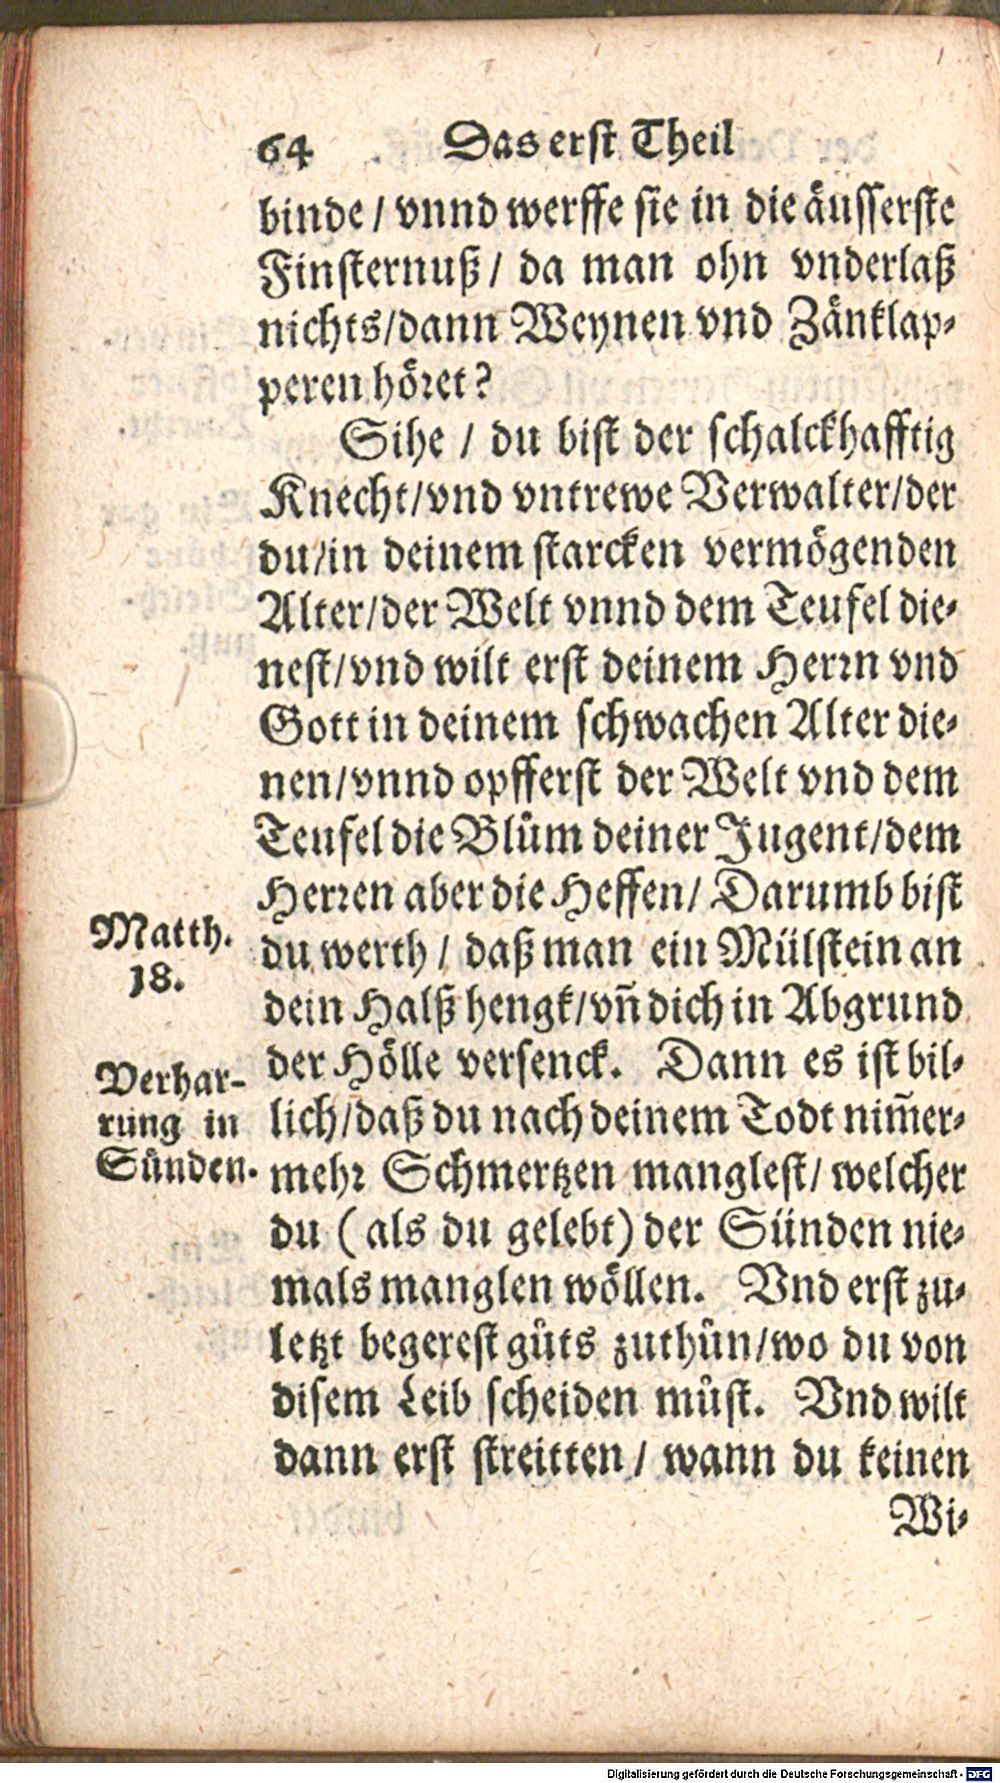 64 Das erst Theil
binde / vnnd werffe sie in die äusserste
Finsternuß / da man ohn vnderlaß
nichts/dann Weynen vnd Zänklap-
peren höret?
Sihe / du bist der schalckhafftig
Knecht/vnd vntrewe Verwalter/der
du/in deinem starcken vermögenden
Alter/der Welt vnnd dem Teufel die-
nest/vnd wilt erst deinem Herrn vnd
Gott in deinem schwachen Alter die-
nen/vnnd opfferst der Welt vnd dem
Teufel die Blům deiner Jugent/dem
Herren aber die Heffen/ Darumb bist
Matth.
18.
du werth / daß man ein Mülstein an
dein Halß hengk/vñ dich in Abgrund
der Hölle versenck. Dann es ist bil-
Verhar-
rung in
Sünden.
lich/daß du nach deinem Todt nim̃er-
mehr Schmertzen manglest/ welcher
du (als du gelebt) der Sünden nie-
mals manglen wöllen. Vnd erst zu-
letzt begerest gůts zuthůn/wo du von
disem Leib scheiden můst. Vnd wilt
dann erst streitten / wann du keinen
Wi-
Digitalisierung gefördert durch die Deutsche Forschungsgemeinschaft - DFG